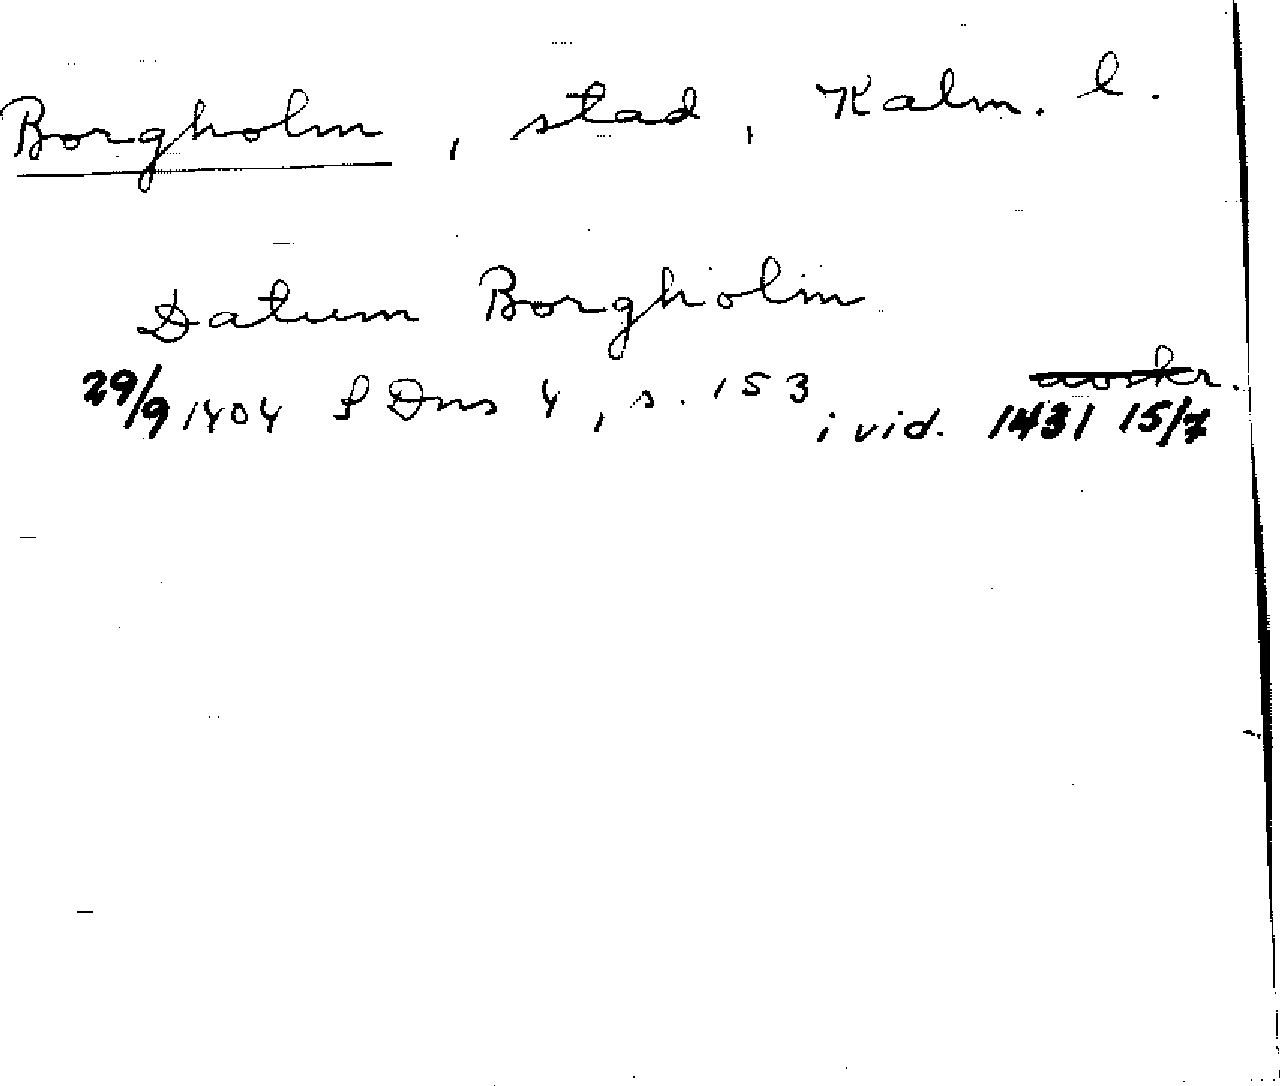 Borgholm, stad, Kalm. l.
Datum Borgholm
29/9 1404 SDns 4, s. 153 avskr.
i vid. 1431 15/7